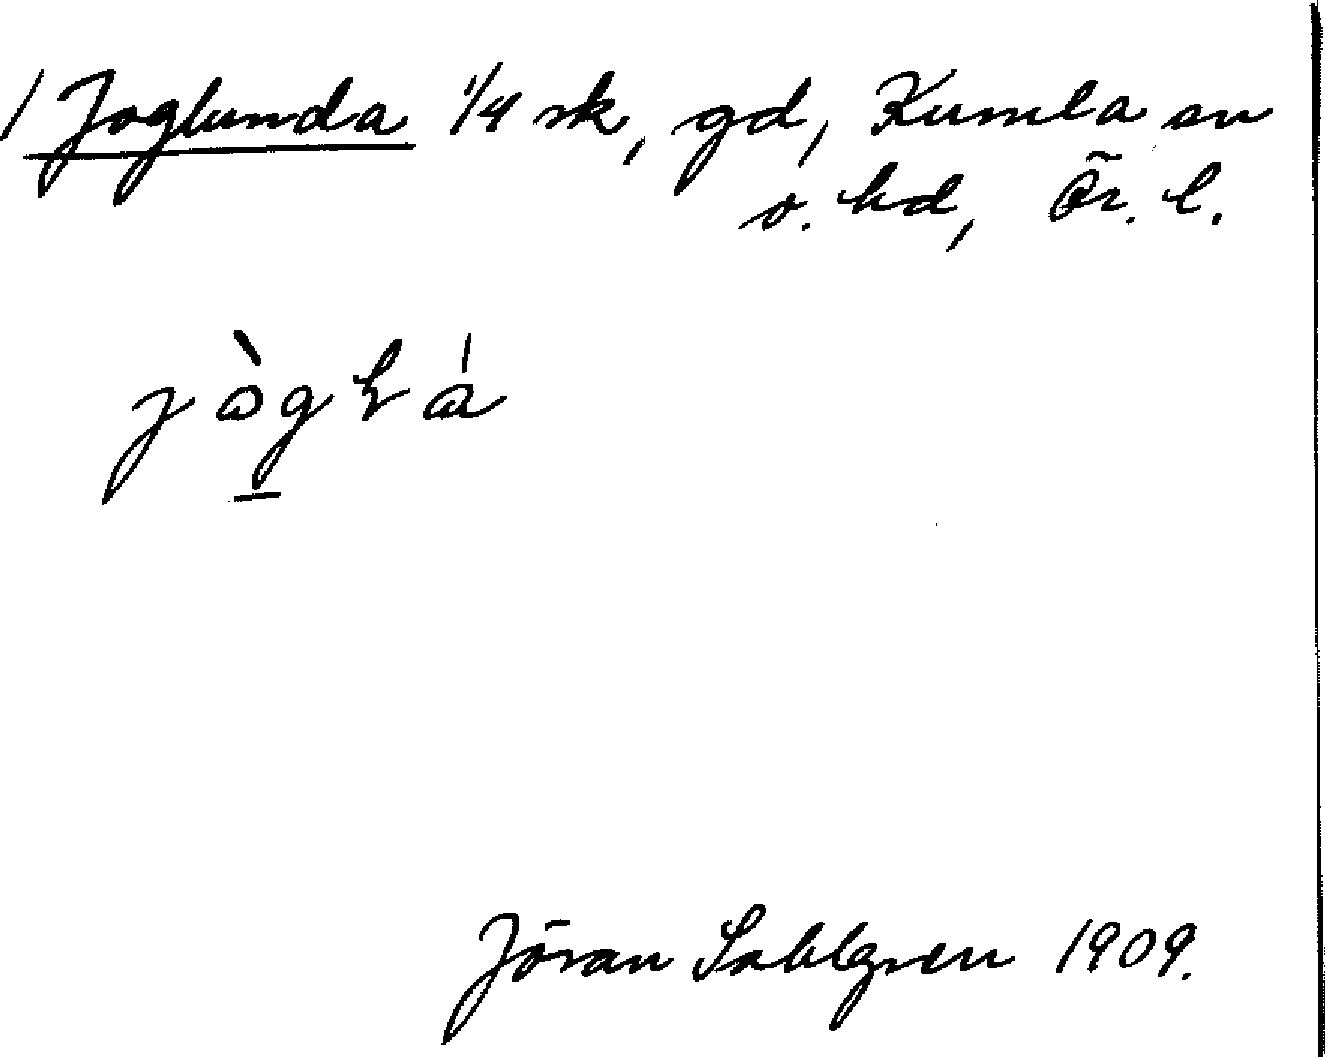 / Joglunda 1/4 sk, gd, Kumla sn
o. hd, Ör. l.
Jöran Sahlgren 1909.